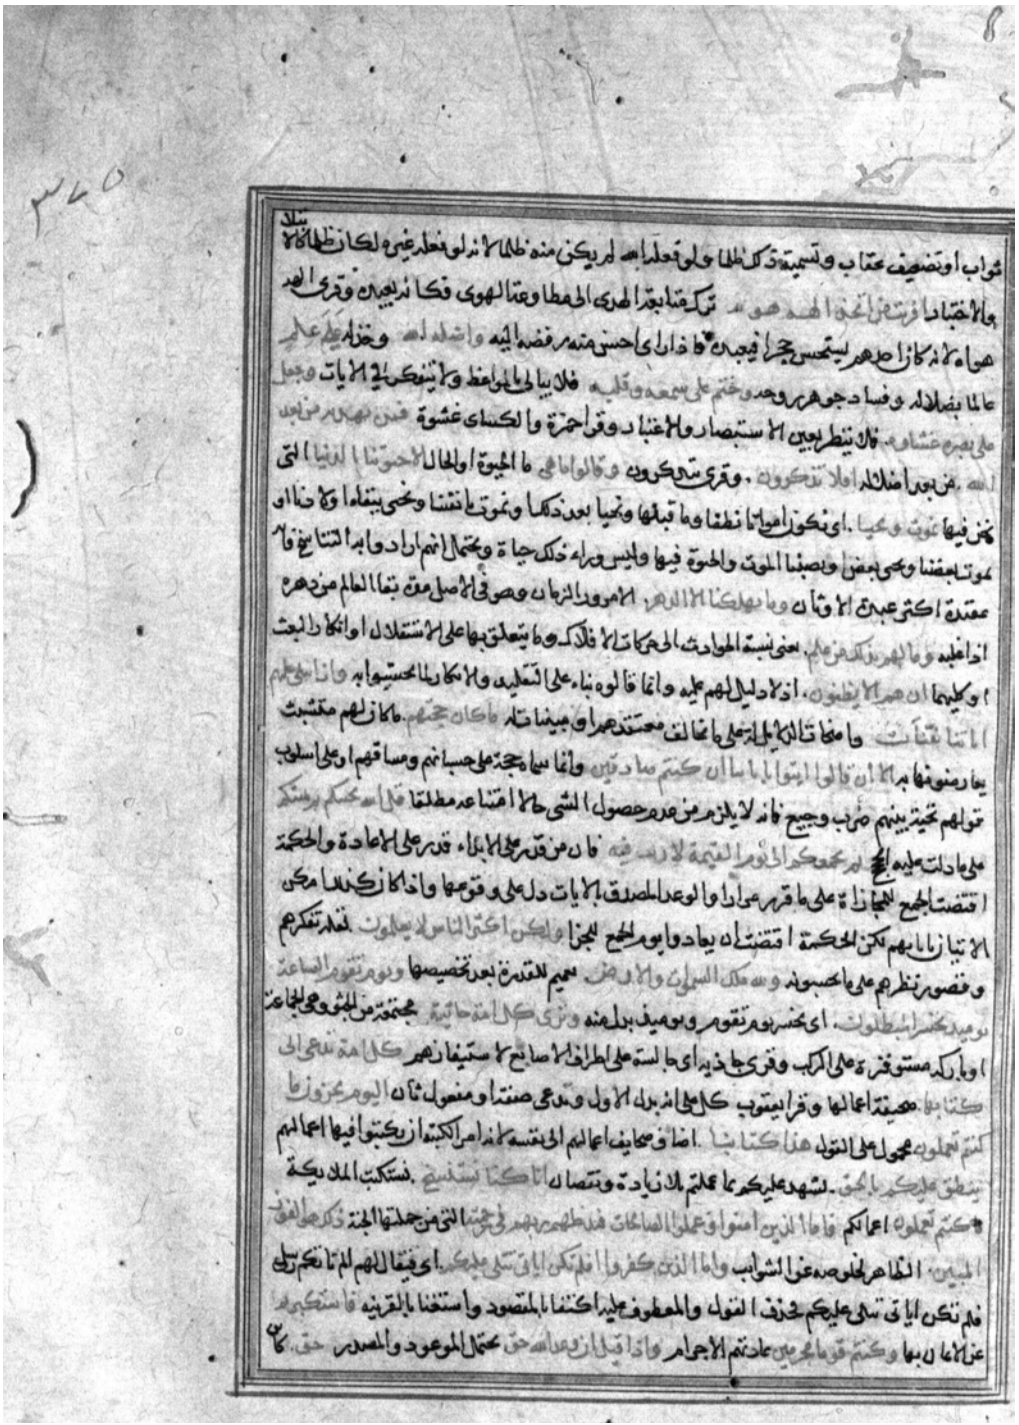 ٣٧٥
ثواب او تضعيف عقاب وتسمية ذلك ظلما ولو فعله الله لم يكن منه ظلما لانه لو فعله غيره لكان ظلما كالابتلا
والاختبار افرايت من اتخذ الهه هواه ترك متابعة الهدى الى مطاوعة الهوى فكانه يعبده وقرى الهة
هواه لانه كان احدهم يستحسن حجرا فيعبده فاذا راى احسن منه رفضه اليه واضله الله وخذله على علم
عالما بضلاله وفساد جوهر روحه وختم على سمعه وقلبه فلا يبالى بالمواعظ ولا يتفكر في الايات وجعل
على بصره غشاوة فلا ينظر بعين الاستبصار والاعتبار وقرا حمزة والكساى غشوة فمن يهديه من بعد
الله من بعد اضلاله افلا تذكرون وقرى تتذكرون وقالوا ما هي ما الحيوة او الحال الا حيوتنا الدنيا التى
نحن فيها نموت ونحيا اى نكون امواتا نطفا وما قبلها ونحيا بعد ذلك او نموت بانفسنا ونحيى ببقاء اولادنا او
نموت بعضنا ويحيى بعض او يصيبنا الموت والحيوة فيها وليس وراء ذلك حياة ويحتمل انهم ارادوا به التناسخ فانه
عقيدة اكثر عبدة الاوثان وما يهلكنا الا الدهر الا مرور الزمان وهو في الاصل مدة بقا العالم من دهره
اذا غلبه وما لهم بذلك من علم يعنى نسبة الحوادث الى حركات الافلاك وما يتعلق بها على الاستقلال او انكار البعث
او كليهما ان هم الا يظنون اذ لا دليل لهم عليه وانما قالوه بناء على التقليد والانكار لما لم يحسوا به واذا تتلى عليهم
اياتنا بينات واضحات الدلالة على ما يخالف معتقدهم او مبينات له ما كان حجتهم ما كان لهم متشبث
يعارضونها به الا ان قالوا ايتوا بابائنا ان كنتم صادقين وانما سماه حجة على حسبانهم ومساقهم او على اسلوب
قولهم تحية بينهم ضرب وجيع فانه لا يلزم من عدم حصول الشى حالا امتناعه مطلقا قل الله يحييكم ثم يميتكم
على ما دلت عليه الحجج ثم يجمعكم الى يوم القيمة لا ريب فيه فان من قدر على الابداء قدر على الاعادة والحكمة
اقتضت الجمع للمجازاة على ما قرر مرارا والوعد المصدق بالايات دل على وقوعها واذا كان كذلك امكن
الاتيان بابائهم لكن الحكمة اقتضت ان يعادوا يوم الجمع للجزا ولكن اكثر الناس لا يعلمون لقلة تفكرهم
وقصور نظرهم على ما يحسونه ولله ملك السموات والارض تعميم للقدرة بعد تخصيصها ويوم تقوم الساعة
يوميذ يخسر المبطلون اى يخسر يوم تقوم ويوميذ بدل منه وترى كل امة جاثية مجتمعة من الجثو وهي الجماعة
او باركة مستوفزة على الركب وقرى جاذية اى جالسة على اطراف الاصابع لاستيفازهم كل امة تدعى الى
كتابها صحيفة اعمالها وقرا يعقوب كل على انه بدل الاول وتدعى صفة او مفعول ثان اليوم تجزون ما
كنتم تعملون محمول على القول هذا كتابنا اضاف صحايف اعمالهم الى نفسه لانه امر الكتبة ان يكتبوا فيها اعمالهم
ينطق عليكم بالحق يشهد عليكم بما عملتم بلا زيادة ونقصان انا كنا نستنسخ نستكتب الملايكة
ما كنتم تعملون اعمالكم فاما الذين امنوا وعملوا الصالحات فيدخلهم ربهم في رحمته التى من جملتها الجنة ذلك هو الفوز
المبين الظاهر لخلوصه عن الشوايب واما الذين كفروا افلم تكن اياتى تتلى عليكم اى فيقال لهم الم تاتكم رسلى
فلم تكن اياتى تتلى عليكم فحذف القول والمعطوف عليه اكتفا بالمقصود واستغنا بالقرينه فاستكبرتم
عن الايمان بها وكنتم قوما مجرمين عادتهم الاجرام واذا قيل ان وعد الله حق يحتمل الموعود والمصدر حق كائن